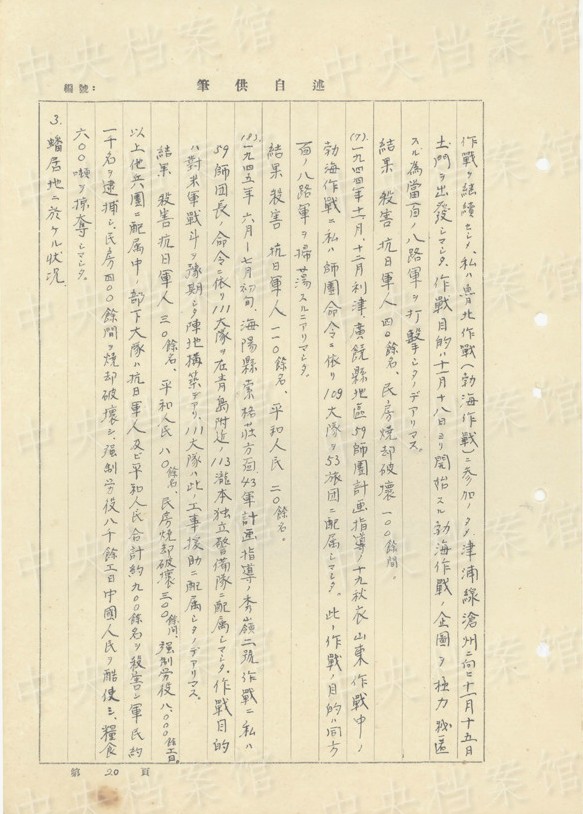 編號:
筆供自述
作戰ヲ継続セシメ、私ハ魯北作戰(渤海作戰)ニ参加ノタメ津浦線滄州ニ向ヒ十一月十五日
土門ヲ出発シマシタ。作戰目的ハ十一月十八日ヨリ開始スル渤海作戰ノ企圖ヲ極力秘匿
スル為當面ノ八路軍ヲ打撃シタノデアリマス。
結果 殺害 抗日軍人 四〇餘名、民房焼却破壊 一〇〇餘間。
(7).一九四四年十一月、十二月利津、廣饒縣地區59師團計画指導ノ十九秋衣山東作戰中ノ
渤海作戰ニ私ハ師團命令ニ依リ109大隊ヲ53旅団ニ配属シマシタ。此ノ作戰ノ目的ハ同方
面ノ八路軍ヲ掃蕩スルニアリマシタ。
結果 殺害 抗日軍人 一一〇餘名、平和人民 二〇餘名。
(8).一九四五年六月—七月初旬、海陽縣索格莊方面43軍計画指導ノ秀嶺二號作戰ニ私ハ
59師団長ノ命令ニ依リ111大隊ヲ在青島附近ノ113瀧本独立警備隊ニ配属シマシタ。作戰目的
ハ對米軍戰斗ヲ豫期シタ陣地構築デアリ、111大隊ハ此ノ工事援助ニ配属シタノデアリマス。
結果 殺害抗日軍人 三〇餘名、平和人民 八〇餘名、民房焼却破壊 三〇〇餘間、強制労役 八、〇〇〇餘工日。
以上他兵團ニ配属中ノ部下大隊ハ抗日軍人及ビ平和人民合計約九〇〇餘名ヲ殺害シ軍民約
一千名ヲ逮捕シ、民房四〇〇餘間ヲ焼却破壊シ、強制労役八千餘工日中國人民ヲ酷使シ、糧食
六〇〇噸ヲ掠奪シマシタ。
3.蟠居地ニ於ケル状况.
第 20 頁
中央档案馆